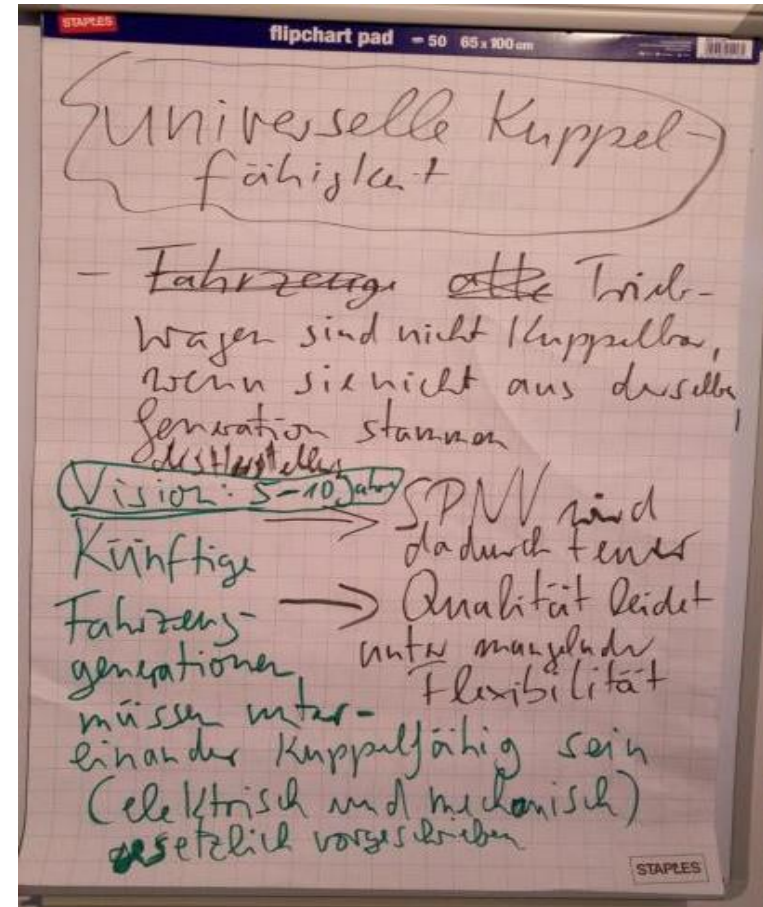 STAPLES
flipchart pad 50 65 x 100 cm
universelle Kuppel-
fähigkeit
- Fahrzeuge alte Trieb-
wagen sind nicht kuppelbar,
wenn sie nicht aus derselben
Generation stammen
des Herstellers
Vision: 5-10 Jahre
→ SPNV wird
dadurch teuer
→ Qualität leidet
unter mangelnder
Flexibilität
Künftige
Fahrzeug-
generationen
müssen unter-
einander kuppelfähig sein
(elektrisch und mechanisch)
gesetzlich vorgeschrieben
STAPLES